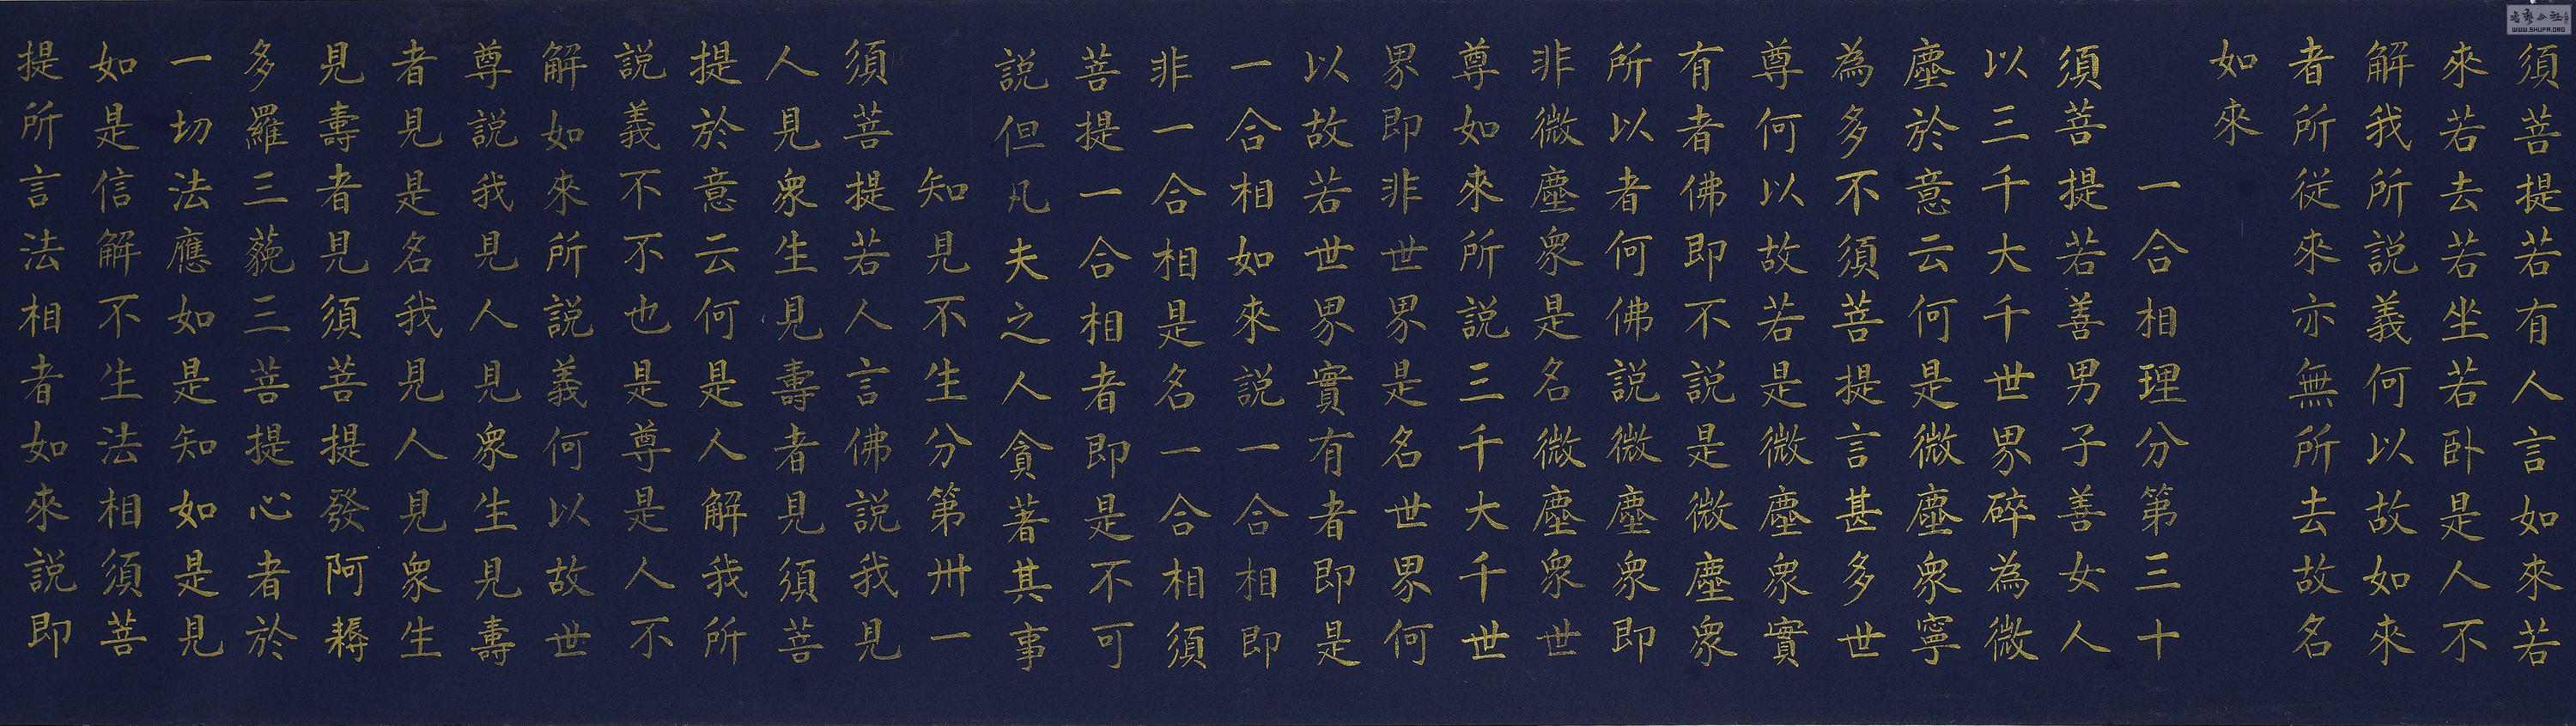 须菩提若有人言如來若
來若去若坐若卧是人不
解我所說義何以故如來
者所從來亦無所去故名
如來
一合相理分第三十
須菩提若善男子善女人
以三千大千世界碎為微
塵於意云何是微塵衆寧
為多不須菩提言甚多世
尊何以故若是微塵衆實
有者佛即不說是微塵衆
所以者何佛說微塵衆即
非微塵衆是名微塵衆世
尊如來所說三千大千世
界即非世界是名世界何
以故若世界實有者即是
一合相如來說一合相即
非一合相是名一合相須
菩提一合相者即是不可
說但凡夫之人貪著其事
知見不生分第卅一
須菩提若人言佛說我見
人見衆生見壽者見須菩
提於意云何是人解我所
說義不不也是尊是人不
解如來所說義何以故世
尊說我見人見衆生見壽
者見是名我見人見衆生
見壽者見須菩提發阿耨
多羅三藐三菩提心者於
一切法應如是知如是見
如是信解不生法相須菩
提所言法相者如來說即
WWW.SHUFA.ORG